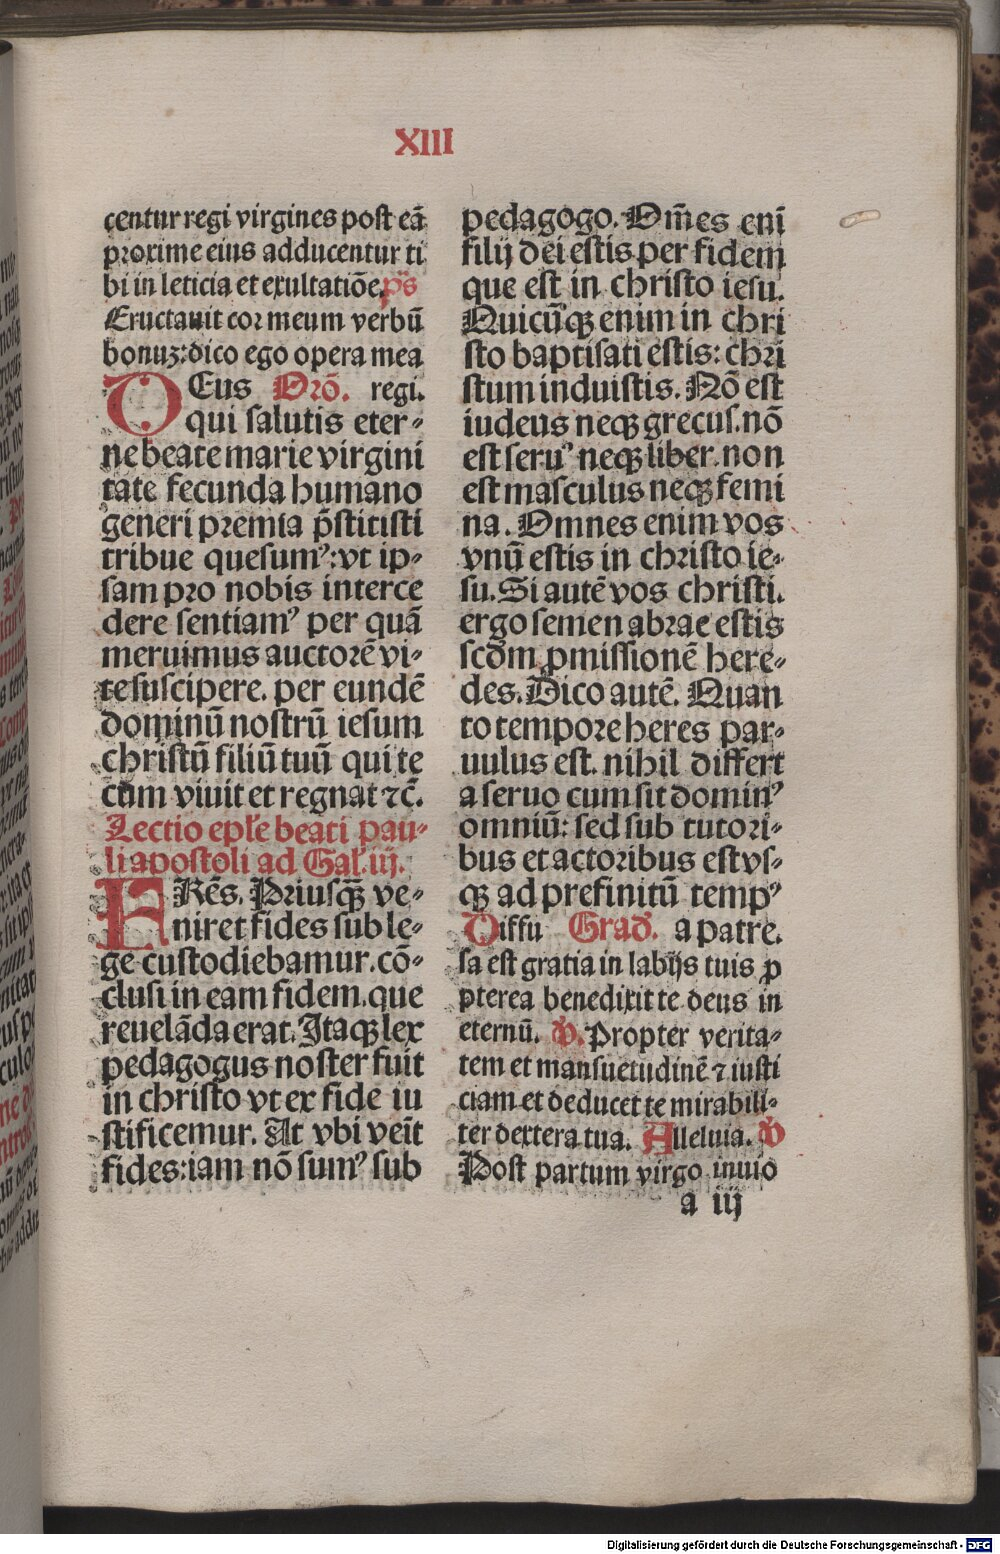 XIII
centur regi virgines post eā
proxime eius adducentur ti
bi in leticia et exultatiōe. p̄s
Eructauit cor meum verbū
bonuꝫ: dico ego opera mea
DEus Orō. regi.
qui salutis eter⸗
ne beate marie virgini
tate fecunda humano
generi premia p̄stitisti
tribue quesumꝰ: vt ip⸗
sam pro nobis interce
dere sentiamꝰ per quā
meruimus auctorē vi⸗
te suscipere. per eundē
dominū nostrū iesum
christū filiū tuū qui te
cum viuit et regnat ⁊c̄.
Lectio epłe beati pau⸗
li apostoli ad Gał. iij.
FRēs. Priusꝙ̄ ve⸗
niret fides sub le⸗
ge custodiebamur. cō⸗
clusi in eam fidem. que
reuelāda erat. Itaqꝫ lex
pedagogus noster fuit
in christo vt ex fide iu
stificemur. At vbi veīt
fides: iam nō sumꝰ sub
pedagogo. Om̄es enī
filij dei estis per fidem
que est in christo iesu.
Quicūqꝫ enim in chri
sto baptisati estis: chri
stum induistis. Nō est
iudeus neqꝫ grecus. nō
est seruꝰ neqꝫ liber. non
est masculus neqꝫ femi
na. Omnes enim vos
vnū estis in christo ie⸗
su. Si autē vos christi.
ergo semen abrae estis
scd̄m ꝓmissionē here⸗
des. Dico autē. Quan
to tempore heres par⸗
uulus est. nihil differt
a seruo cum sit dominꝰ
omniū: sed sub tutori⸗
bus et actoribus est vs⸗
qꝫ ad prefinitū tempꝰ
Diffu Grad̄. a patre.
sa est gratia in labijs tuis ꝓ
pterea benedixit te deus in
eternū. ℣. Propter verita⸗
tem et mansuetudinē ⁊ iusti
ciam et deducet te mirabili⸗
ter dextera tua. Alleluia. ℣
Post partum virgo inuio
a iij
Digitalisierung gefördert durch die Deutsche Forschungsgemeinschaft - DFG